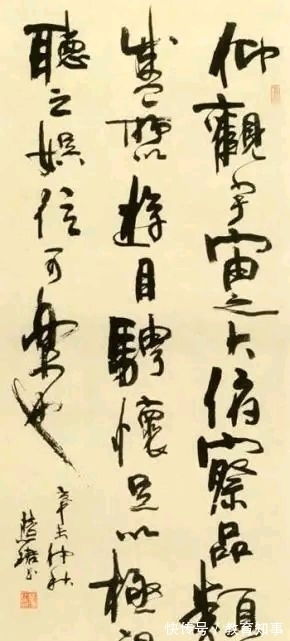 仰觀宇宙之大俯察品類
盛所以遊目騁懷足以極視
聽之娛信可樂也
辛未仲秋
快传号/教育知事